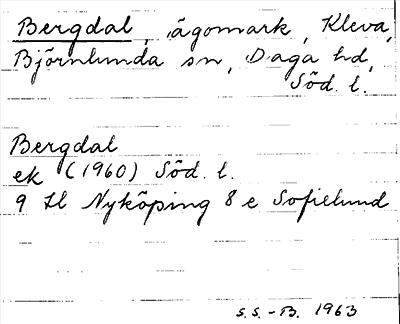 Bergdal, ägomark, Kleva,
Björnlunda sn, Daga hd,
Söd. l.
Bergdal
ek (1960) Söd. l.
9 Il Nyköping 8 e Sofielund
S.S.-B. 1963